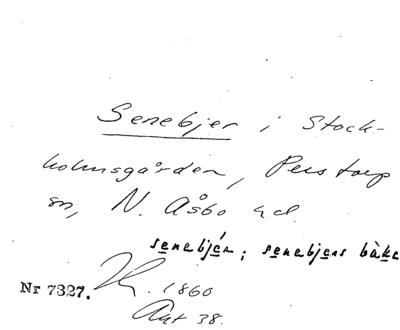 Senebjer i Stock-
holmsgården, Perstorp
sn, N. Åsbo hd.
senebjér; senebjers bàke
Nr 7327. 1860
Ant 38.